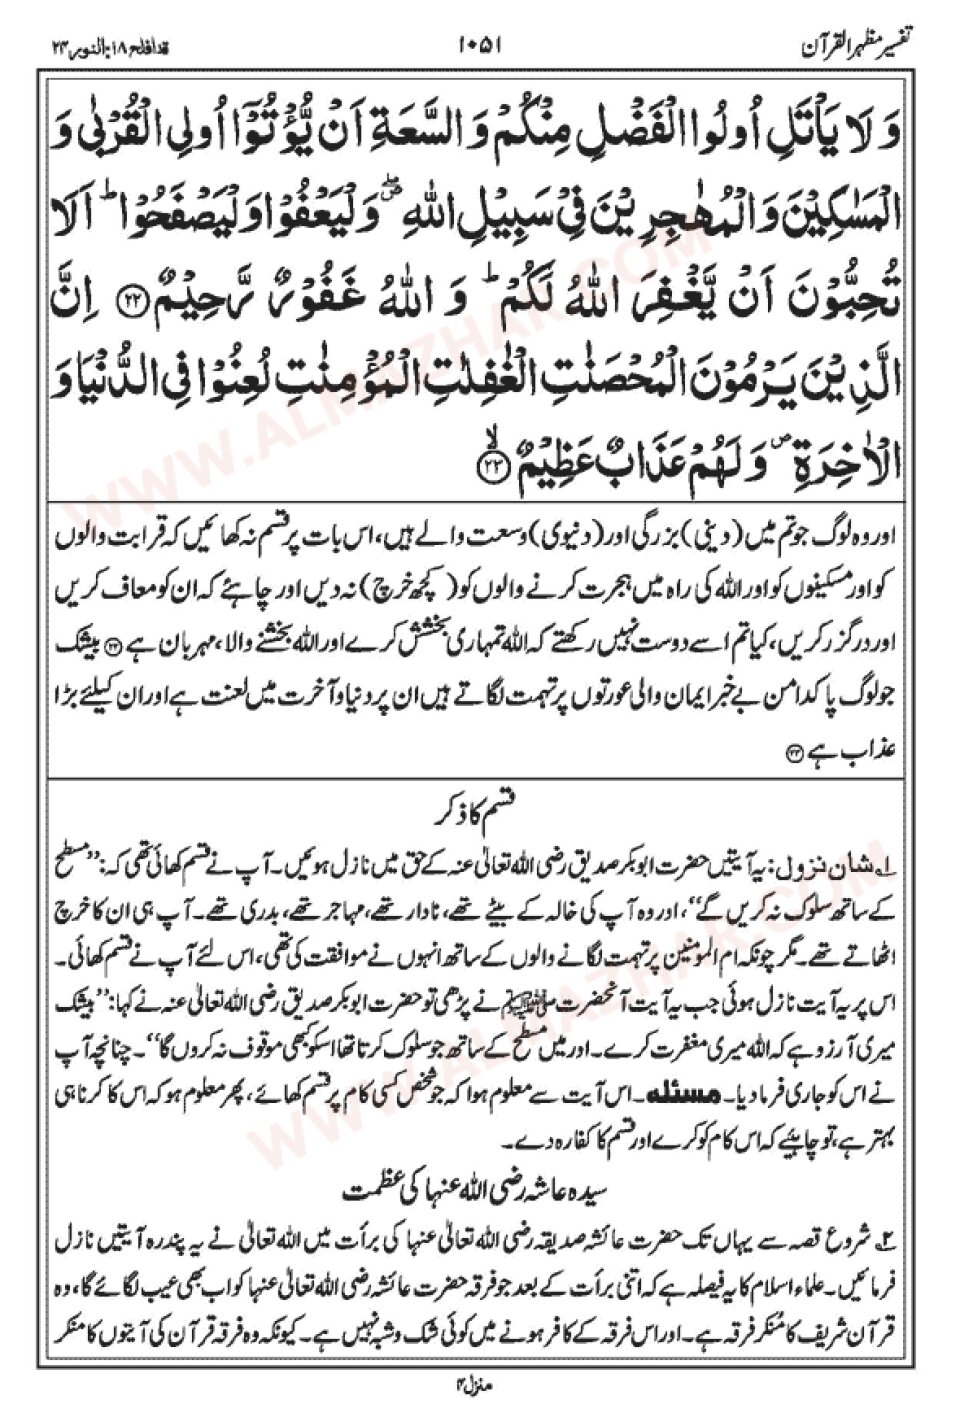 تفسیر مظہر القرآن
۱۰۵۱
قد افلح ۱۸: النور ۲۴
وَلَا يَاْتَلِ اُولُوا الْفَضْلِ مِنْكُمْ وَالسَّعَةِ اَنْ يُّؤْتُوْٓا اُولِي الْقُرْبٰى وَ
الْمَسٰكِيْنَ وَالْمُهٰجِرِيْنَ فِيْ سَبِيْلِ اللّٰهِ ۖ وَلْيَعْفُوْا وَلْيَصْفَحُوْا ؕ اَلَا
تُحِبُّوْنَ اَنْ يَّغْفِرَ اللّٰهُ لَكُمْ ؕ وَ اللّٰهُ غَفُوْرٌ رَّحِيْمٌ ۝۲۲ اِنَّ
الَّذِيْنَ يَرْمُوْنَ الْمُحْصَنٰتِ الْغٰفِلٰتِ الْمُؤْمِنٰتِ لُعِنُوْا فِي الدُّنْيَا وَ
الْاٰخِرَةِ ۠ وَلَهُمْ عَذَابٌ عَظِيْمٌ ۙ۝۲۳
اور وہ لوگ جو تم میں (دینی) بزرگی اور (دنیوی) وسعت والے ہیں، اس بات پر قسم نہ کھائیں کہ قرابت والوں
کو اور مسکینوں کو اور اللہ کی راہ میں ہجرت کرنے والوں کو (کچھ خرچ) نہ دیں اور چاہئے کہ ان کو معاف کریں
اور درگزر کریں، کیا تم اسے دوست نہیں رکھتے کہ اللہ تمہاری بخشش کرے اور اللہ بخشنے والا، مہربان ہے ۲۲ بیشک
جو لوگ پاکدامن بے خبر ایمان والی عورتوں پر تہمت لگاتے ہیں ان پر دنیا و آخرت میں لعنت ہے اور ان کیلئے بڑا
عذاب ہے ۲۳
قسم کا ذکر
۱ شان نزول: یہ آیتیں حضرت ابوبکر صدیق رضی اللہ تعالیٰ عنہ کے حق میں نازل ہوئیں۔ آپ نے قسم کھائی تھی کہ: ’’مسطح
کے ساتھ سلوک نہ کریں گے‘‘، اور وہ آپ کی خالہ کے بیٹے تھے، نادار تھے، مہاجر تھے، بدری تھے۔ آپ ہی ان کا خرچ
اٹھاتے تھے۔ مگر چونکہ ام المومنین پر تہمت لگانے والوں کے ساتھ انہوں نے موافقت کی تھی، اس لئے آپ نے قسم کھائی۔
اس پر یہ آیت نازل ہوئی جب یہ آیت آنحضرت ﷺ نے پڑھی تو حضرت ابوبکر صدیق رضی اللہ تعالیٰ عنہ نے کہا: ’’بیشک
میری آرزو ہے کہ اللہ میری مغفرت کرے۔ اور میں مسطح کے ساتھ جو سلوک کرتا تھا اسکو کبھی موقوف نہ کروں گا‘‘۔ چنانچہ آپ
نے اس کو جاری فرما دیا۔ مسئلہ۔ اس آیت سے معلوم ہوا کہ جو شخص کسی کام پر قسم کھائے، پھر معلوم ہو کہ اس کا کرنا ہی
بہتر ہے، تو چاہئیے کہ اس کام کو کرے اور قسم کا کفارہ دے۔
سیدہ عاشہ رضی اللہ عنہا کی عظمت
۲ شروع قصہ سے یہاں تک حضرت عائشہ صدیقہ رضی اللہ تعالیٰ عنہا کی برأت میں اللہ تعالیٰ نے یہ پندرہ آیتیں نازل
فرمائیں۔ علماء اسلام کا یہ فیصلہ ہے کہ اتنی برأت کے بعد جو فرقہ حضرت عائشہ رضی اللہ تعالیٰ عنہا کو اب بھی عیب لگائے گا، وہ
قرآن شریف کا مُنکر فرقہ ہے۔ اور اس فرقہ کے کافر ہونے میں کوئی شک و شبہ نہیں ہے۔ کیونکہ وہ فرقہ قرآن کی آیتوں کا منکر
منزل ۴
WWW.ALMAZHAR.COM
WWW.ALMAZHAR.COM